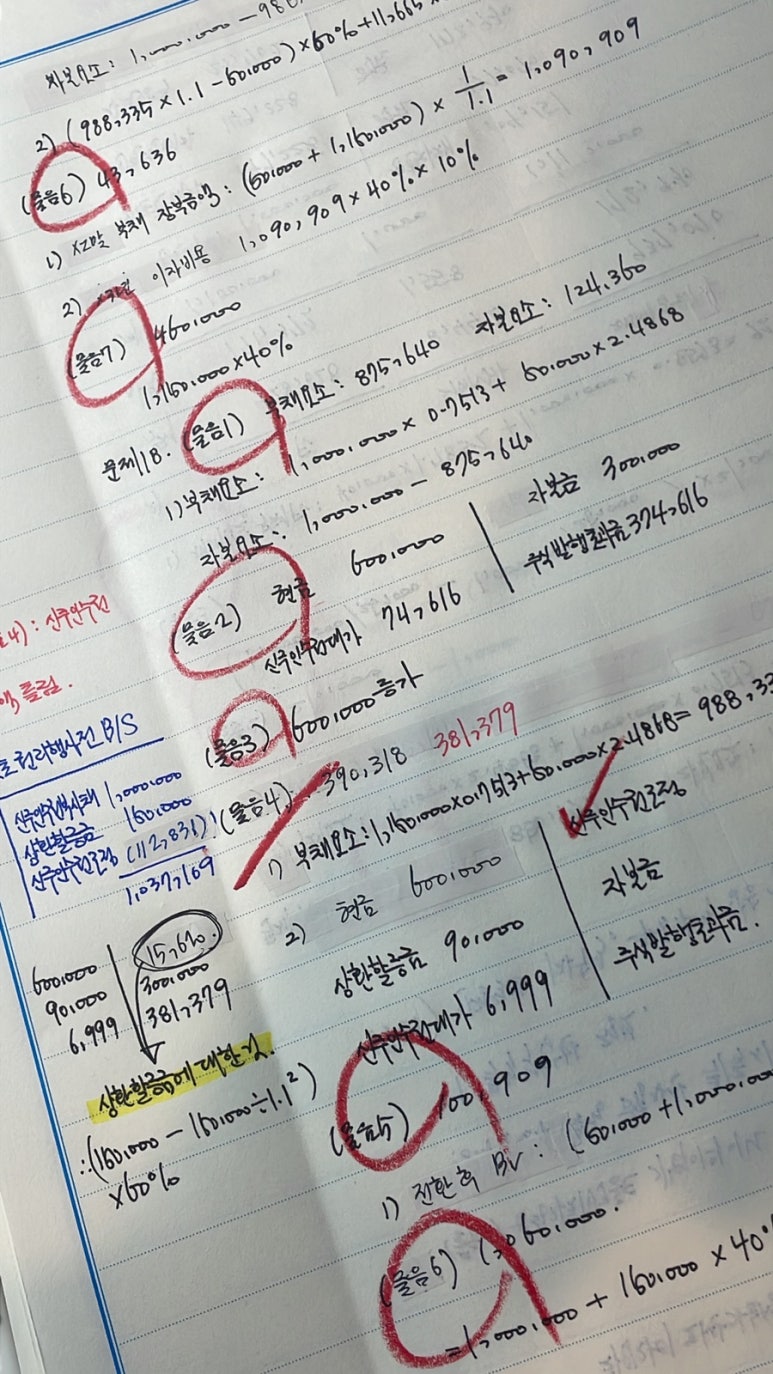 자본요소: 1,000,000 - 980,
2) (988,335 × 1.1 - 60,000) × 60% + 11,665 ×
(물음6) 43,636
1) X2말 부채 장부금액: (60,000 + 1,160,000) × 1/1.1 = 1,090,909
2) 이자비용 1,090,909 × 40% × 10%
(물음7) 460,000
1,160,000 × 40%
문제18. (물음1) 부채요소: 875,640 자본요소: 124,360
1) 부채요소: 1,000,000 × 0.7513 + 50,000 × 2.4868
자본요소: 1,000,000 - 875,640
(물음2) 현금 600,000 자본금 300,000
신주인수권대가 74,616 주식발행초과금 374,616
(물음3) 600,000 증가
(물음4) 390,318 381,379
1) 부채요소: 1,160,000 × 0.7513 + 60,000 × 2.4868 = 988,33
2) 현금 600,000 신주인수권조정
상환할증금 90,000 자본금
신주인수권대가 6,999 주식발행초과금.
(물음5) 100,909
1) 전환 후 BV : (60,000 + 1,000,000
(물음6) 1,060,000.
= 1,000,000 + 160,000 × 40%
4) : 신주인수권
액, 틀림.
권리행사전 B/S
신주인수권부사채 1,000,000
상환할증금 160,000
신주인수권조정 (112,831)
1,037,169
600,000 15,6
90,000 300,000
6,999 381,379
상환할증금에 대한 것.
∴(160,000 - 160,000 ÷ 1.1²)
×60%